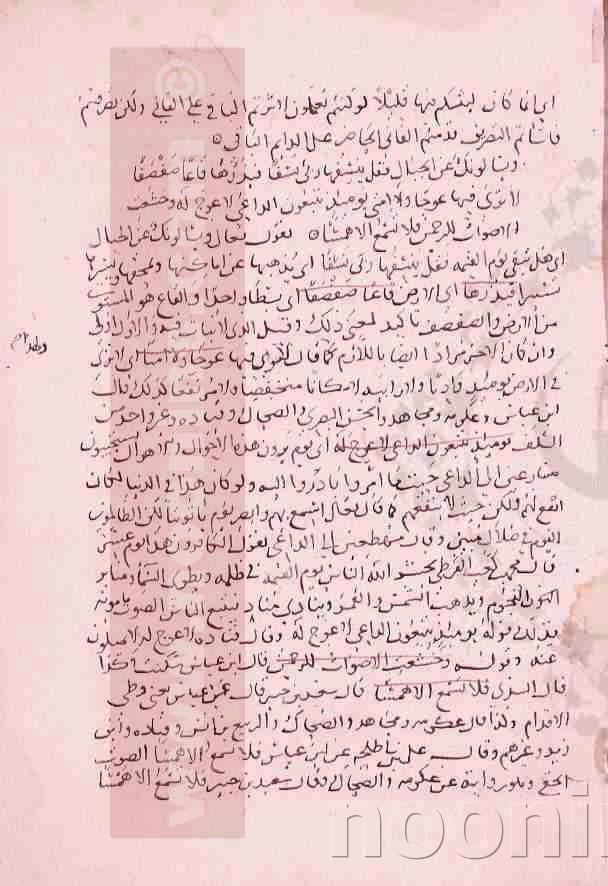 اى انما كان لبثكم فيها قليلا لو كنتم تعلمون لاثرتم الباقي على الفاني ولكن تصرفتم
فاساتم التصرف قدمتم الفاني الحاضر على الدايم الباقي
ويسالونك عن الجبال فقل ينسفها ربي نسفا فيذرها قاعا صفصفا
لا ترى فيها عوجا ولا امتا يومئذ يتبعون الداعي لا عوج له وخشعت
الاصوات للرحمن فلا تسمع الا همسا يقول تعالى ويسالونك عن الجبال
اى هل تبقى يوم القيمه فقل ينسفها ربي نسفا اى يذهبها عن اماكنها ويمحقها ويسيرها
تسييرا فيذرها اى الارض قاعا صفصفا اى بساطا واحدا والقاع هو المستوى
من الارض والصفصف تاكيد لمعنى ذلك وقيل الذى لا نبات فيه والاول اولى
وان كان الاخر مرادا ايضا باللازم كما قال لا ترى فيها عوجا ولا امتا اى لا ترى
في الارض يومئذ واديا ولا رابيه ولا مكانا منخفضا ولا مرتفعا كذلك قال
ابن عباس وعكرمه ومجاهد والحسن البصرى والضحاك وقتاده وغير واحد من
السلف يومئذ يتبعون الداعي لا عوج له اى يوم يرون هذه الاحوال والاهوال يستجيبون
مسارعين الى الداعي حيثما امروا بادروا اليه ولو كان هذا في الدنيا لكان
انفع لهم ولكن حيث لا ينفعهم كما قال تعالى اسمع بهم وابصر يوم ياتوننا لكن الظالمون
اليوم في ضلال مبين وقال مهطعين الى الداعي يقول الكافرون هذا يوم عسر
قال محمد بن كعب القرظي يحشر الله الناس يوم القيمه في ظلمه ويطوى السماء وتتناثر
النجوم ويذهب الشمس والقمر وينادى مناد فيتبع الناس الصوت يامونه
فذلك قوله يومئذ يتبعون الداعي لا عوج له وقال قتاده لا عوج له لا يميلون
عنه وقوله وخشعت الاصوات للرحمن قال ابن عباس سكنت وكذا
قال السدى فلا تسمع الا همسا قال سعيد بن جبير عن ابن عباس يعني وطي
الاقدام وكذا قال عكرمه ومجاهد والضحاك والربيع بن انس وقتاده وابن
زيد وغيرهم وقال على بن ابي طلحه عن ابن عباس فلا تسمع الا همسا الصوت
الخفي وهو رواية عن عكرمه والضحاك وقال سعيد بن جبير فلا تسمع الا همسا
nooni